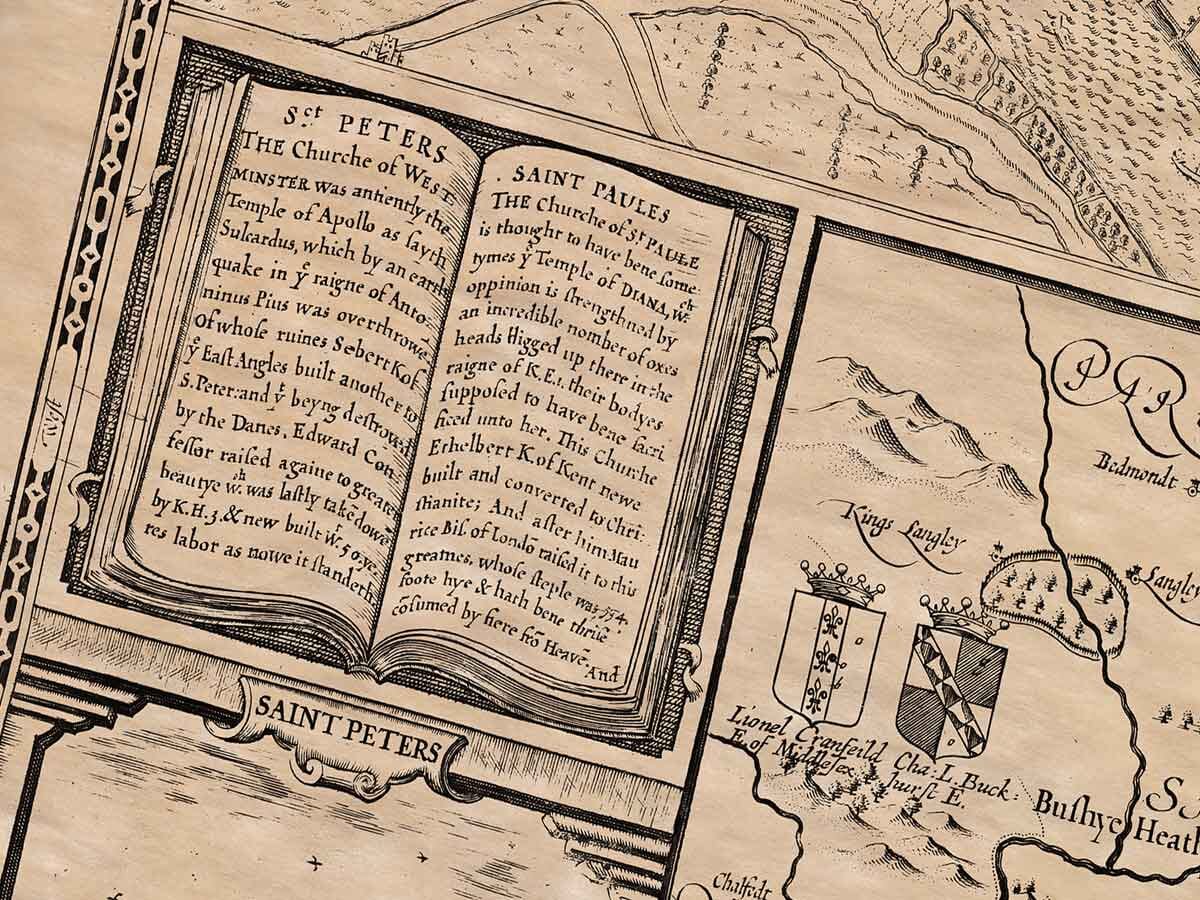 Sct PETERS
THE Churche of WEST:
MINSTER was antiently the
Temple of Apollo as ſayth
Sulcardus, which by an earth
quake in ye raigne of Anto
ninus Pius was overthrowē
Of whoſe ruines Sebert K of
ye Eaſt Angles built another to
S. Peter: and yt beyng deſtroyed
by the Danes, Edward Con
feſſor raiſed againe to greate
beautye wch was laſtly takē downe
by K. H. 3. & new built wt 50 ye
res labor as nowe it ſtandeth
SAINT PAULES
THE Churche of St PAULE
is thought to have bene ſome
tymes ye Temple of DIANA, wch
oppinion is ſtrengthned by
an incredible nomber of oxes
heads digged up there in the
raigne of K. E. 1. their bodyes
ſuppoſed to have bene ſacri
ficed unto her. This Churche
Ethelbert K. of Kent newe
built and converted to Chri
ſtianite; And after him Mau
rice Biſ. of Londō raiſed it to this
greatnes, whoſe ſteple was 534.
foote hye & hath bene thriſe
cōſumed by fiere frō Heavē. And
SAINT PETERS
Weſt
PAR
Bedmondt
Kings Langley
Langley
Lionel Cranfeild
E. of Middleſex
Cha: L. Buck:
hurſt E.
Buſhye Heath
Chalfedt